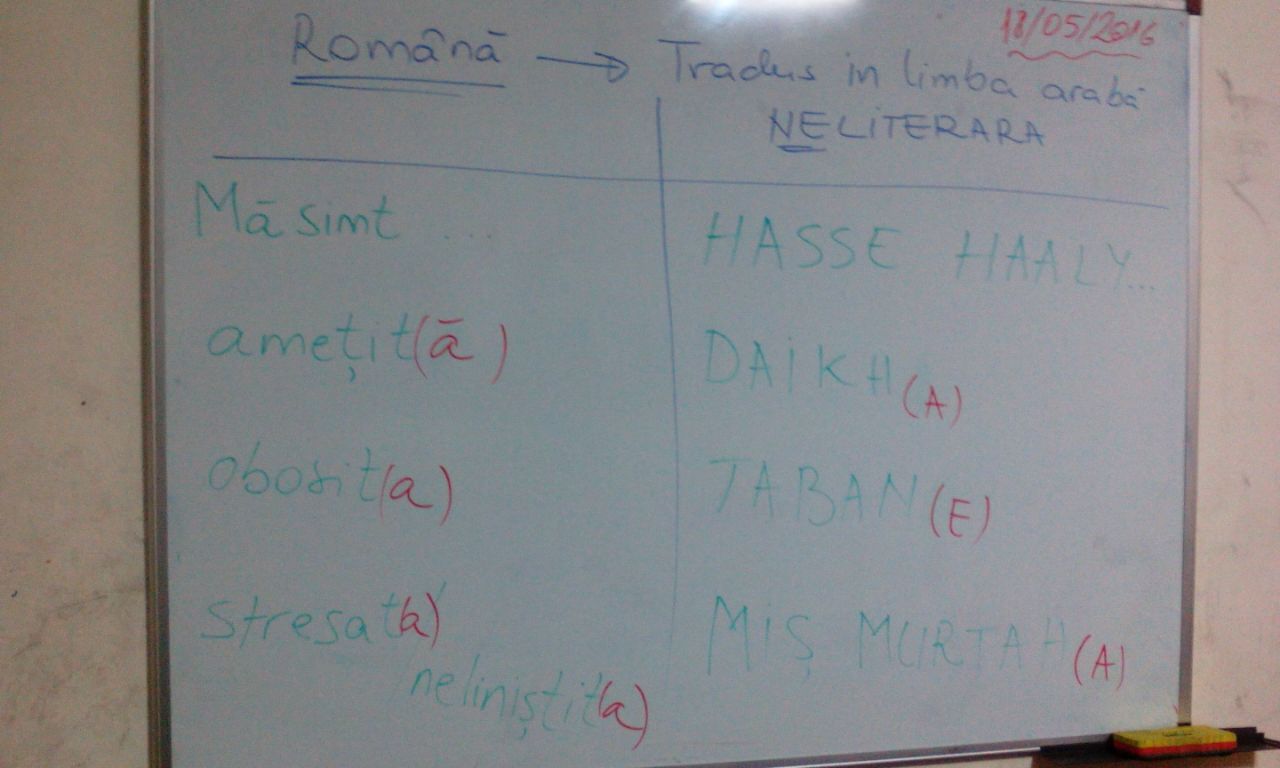 18/05/2016
Română → Tradus in limba arabă
NELITERARA
Mă simt ... HASSE HAALY...
amețit(ă) DAIKH(A)
obosit(a) TABAN(E)
stresat(a) MIȘ MURTAH(A)
neliniștit(a)